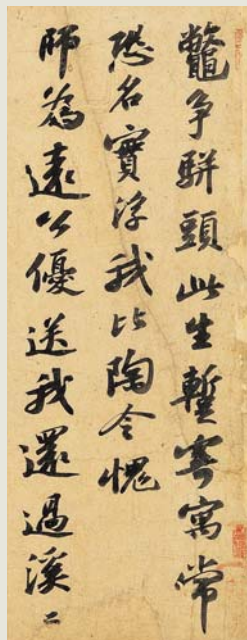 鼈争駢頭此生暫寄寓常
恐名實浮我比陶令愧
師為遠公優送我還過溪〻